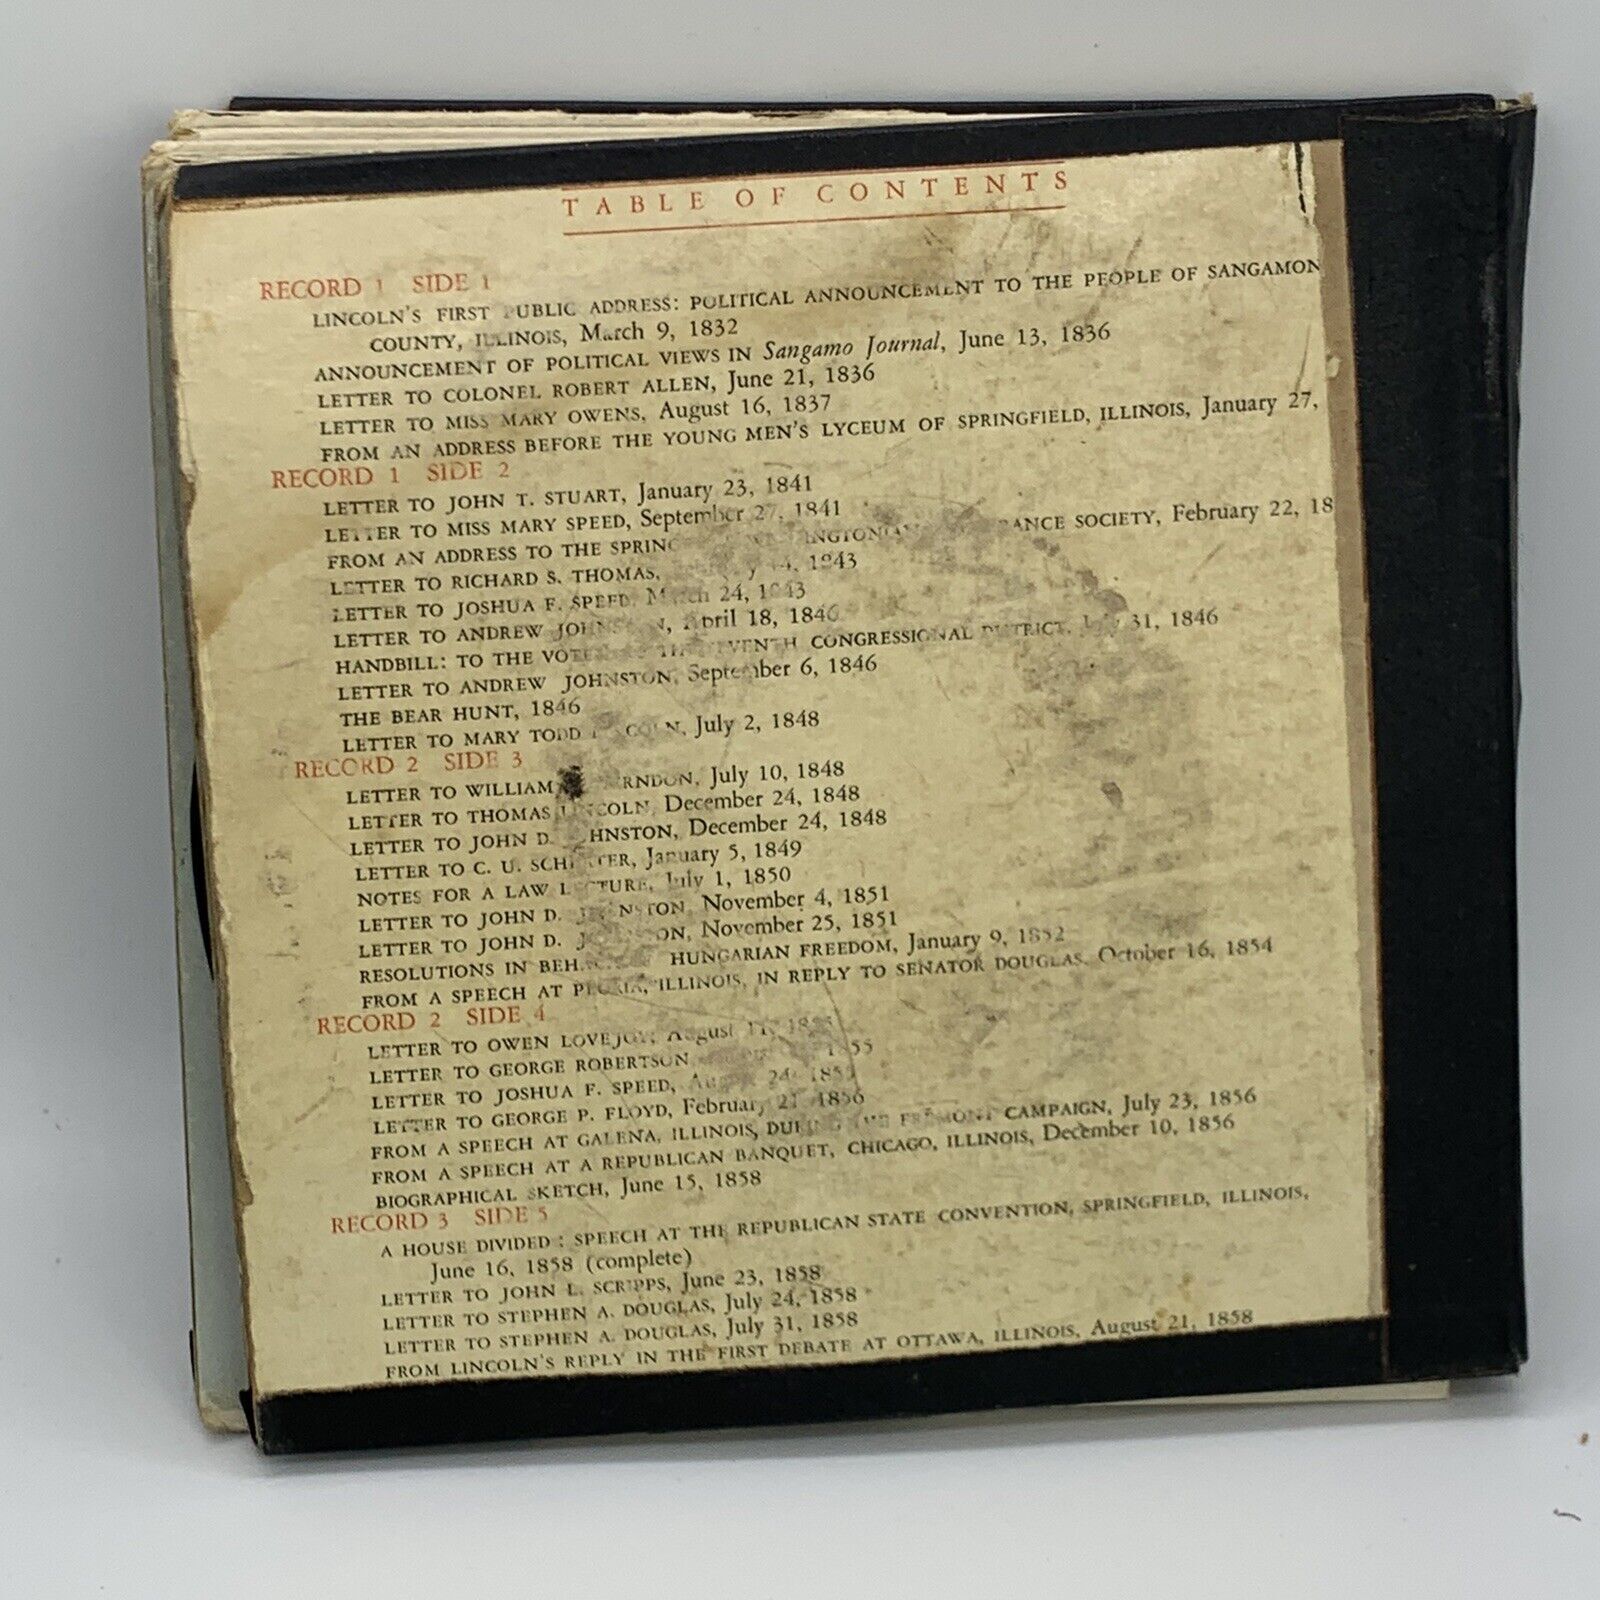 TABLE OF CONTENTS
RECORD 1 SIDE 1
LINCOLN'S FIRST PUBLIC ADDRESS: POLITICAL ANNOUNCEMENT TO THE PEOPLE OF SANGAMON
COUNTY, ILLINOIS, March 9, 1832
ANNOUNCEMENT OF POLITICAL VIEWS IN Sangamo Journal, June 13, 1836
LETTER TO COLONEL ROBERT ALLEN, June 21, 1836
LETTER TO MISS MARY OWENS, August 16, 1837
FROM AN ADDRESS BEFORE THE YOUNG MEN'S LYCEUM OF SPRINGFIELD, ILLINOIS, January 27,
RECORD 1 SIDE 2
LETTER TO JOHN T. STUART, January 23, 1841
LETTER TO MISS MARY SPEED, September 27, 1841
FROM AN ADDRESS TO THE SOCIETY, February 22, 18
LETTER TO RICHARD S. THOMAS, 1843
LETTER TO JOSHUA F. SPEED, March 24, 1843
LETTER TO ANDREW JOHNSTON, April 18, 1846
HANDBILL: TO THE VOTERS SEVENTH CONGRESSIONAL DISTRICT, July 31, 1846
LETTER TO ANDREW JOHNSTON, September 6, 1846
THE BEAR HUNT, 1846
LETTER TO MARY TODD LINCOLN, July 2, 1848
RECORD 2 SIDE 3
LETTER TO WILLIAM HERNDON, July 10, 1848
LETTER TO THOMAS LINCOLN, December 24, 1848
LETTER TO JOHN D. JOHNSTON, December 24, 1848
LETTER TO C. U. January 5, 1849
NOTES FOR A LAW LECTURE, July 1, 1850
LETTER TO JOHN D. JOHNSTON, November 4, 1851
LETTER TO JOHN D. JOHNSTON, November 25, 1851
RESOLUTIONS IN BEHALF OF HUNGARIAN FREEDOM, January 9, 1852
FROM A SPEECH AT PEORIA, ILLINOIS, IN REPLY TO SENATOR DOUGLAS, October 16, 1854
RECORD 2 SIDE 4
LETTER TO OWEN LOVEJOY, August 11, 1855
LETTER TO GEORGE ROBERTSON, 1855
LETTER TO JOSHUA F. SPEED, August 24, 1855
LETTER TO GEORGE P. FLOYD, February 21, 1856
FROM A SPEECH AT GALENA, ILLINOIS, DURING THE FREMONT CAMPAIGN, July 23, 1856
FROM A SPEECH AT A REPUBLICAN BANQUET, CHICAGO, ILLINOIS, December 10, 1856
BIOGRAPHICAL SKETCH, June 15, 1858
RECORD 3 SIDE 5
A HOUSE DIVIDED: SPEECH AT THE REPUBLICAN STATE CONVENTION, SPRINGFIELD, ILLINOIS,
June 16, 1858 (complete)
LETTER TO JOHN L. SCRIPPS, June 23, 1858
LETTER TO STEPHEN A. DOUGLAS, July 24, 1858
LETTER TO STEPHEN A. DOUGLAS, July 31, 1858
FROM LINCOLN'S REPLY IN THE FIRST DEBATE AT OTTAWA, ILLINOIS, August 21, 1858